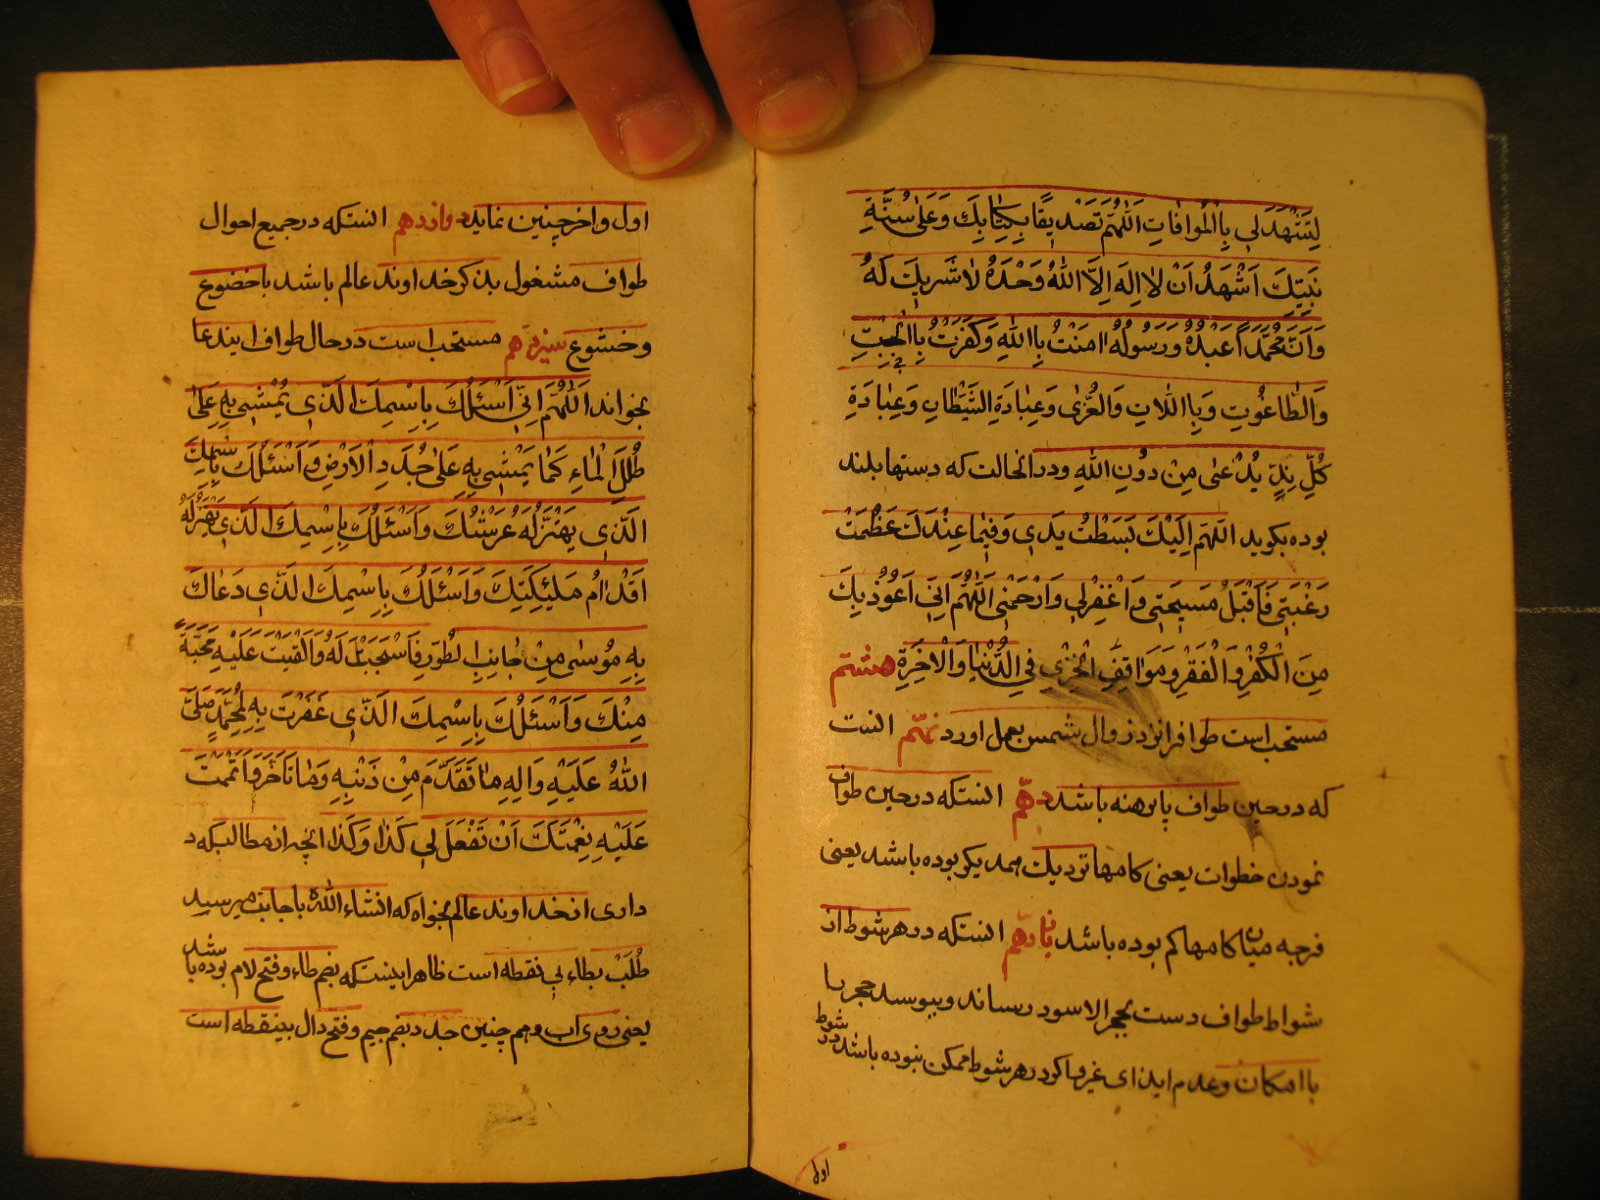 لِتَشْهَدَ لِي بِاالْمُوافَاتِ اَللّٰهُمَّ تَصْدِيقًا بِكِتَابِكَ وَعَلىٰ سُنَّةِ
نَبِيِّكَ اَشْهَدُ اَنْ لٰا اِلَهَ اِلَّا اللّٰهُ وَحْدَهُ لٰا شَرِيكَ لَهُ
وَاَنَّ مُحَمَّدَاً عَبْدُهُ وَرَسُولُهُ اٰمَنْتُ بِااللّٰهِ وَكَفَرْتُ بِاالْجِبْتِ
وَالطّٰاغُوتِ وَبِااللّٰاتِ وَالْعُزّىٰ وَعِبٰادَةِ الشَّيْطٰانِ وَعِبٰادَةِ
كُلِّ نِدٍّ يُدْعىٰ مِنْ دُونِ اللّٰهِ ودر انحالت كه دستها بلند
بوده بگويد اللّهمّ اِلَيْكَ بَسَطْتُ يَدِي وَفِيمٰا عِنْدَكَ عَظُمَتْ
رَغْبَتِي فَاَقْبَلْ مَسِيحَتِي وَاَغْفِرْلِي وَارْحَمْنِي اَللّٰهُمَّ اِنِّي اَعُوذُ بِكَ
مِنَ الْكُفْرِ وَالْفَقْرِ وَمَوٰاقِفِ الْخِزْيِ فِي الدُّنْيٰا وَالْاٰخِرَةِ هشتم
مستحب است طواف را نزد زوال شمس بعمل اورد نهّم انست
كه در حين طواف پابرهنه باشد دهّم انستكه در حين طواف
نمودن خطوات يعنى كامها نزديك همديكر بوده باشد يعنى
فرجه ميان كامها كم بوده باشد يازدهم انستكه در هر شوط از
شواط طواف دست بحجر الاسود رساند وببوسد حجر را
باامكان وعدم ايذاى غير واكر در هر شوط ممكن نبوده باشد در شوط
اول
اول واخر چنين نمايد دوازدهم انستكه در جميع احوال
طواف مشغول بذكر خداوند عالم باشد با خضوع
وخشوع سيزدهم مستحب است در حال طواف ايندعا
بخواند اَللّٰهُمَّ اِنِّي اَسْئَلُكَ بِاِسْمِكَ الَّذِي يُمْشىٰ بِهِ عَلىٰ
طُلَلِ الْمٰاءِ كَمٰا يُمْشىٰ بِهِ عَلىٰ جُدَدِ الْاَرْضِ وَاَسْئَلُكَ بِاِسْمِكَ
الَّذِي يَهْتَزُّ لَهُ عَرْشُكَ وَاَسْئَلُكَ بِاِسْمِكَ الَّذِي يَهْتَزُّ لَهُ
اَقْدٰامُ مَلٰئِكَتِكَ وَاَسْئَلُكَ بِاِسْمِكَ الَّذِي دَعٰاكَ
بِهِ مُوسىٰ مِنْ جٰانِبِ الطُّورِ فَاسْتَجَبْتَ لَهُ وَاَلْقَيْتَ عَلَيْهِ مَحَبَّةً
مِنْكَ وَاَسْئَلُكَ بِاِسْمِكَ الَّذِي غَفَرْتَ بِهِ لِمُحَمَّدٍ صَلَّى
اللّٰهُ عَلَيْهِ وَاٰلِهِ مٰا تَقَدَّمَ مِنْ ذَنْبِهِ وَمٰا تَاَخَّرَ وَاَتْمَمْتَ
عَلَيْهِ نِعْمَتَكَ اَنْ تَفْعَلَ لِي كَذٰا وَكَذٰا انچه از مطالب كه د
دارى از خداوند عالم بخواه كه انشاء اللّٰه باجابت ميرسد
طُلَبْ بطاء بي نقطه است ظاهرا اينستكه بضم طاء وفتح لام بوده باشد
يعنى روى اب وهم چنين جدد بضم جيم وفتح دال بينقطه است